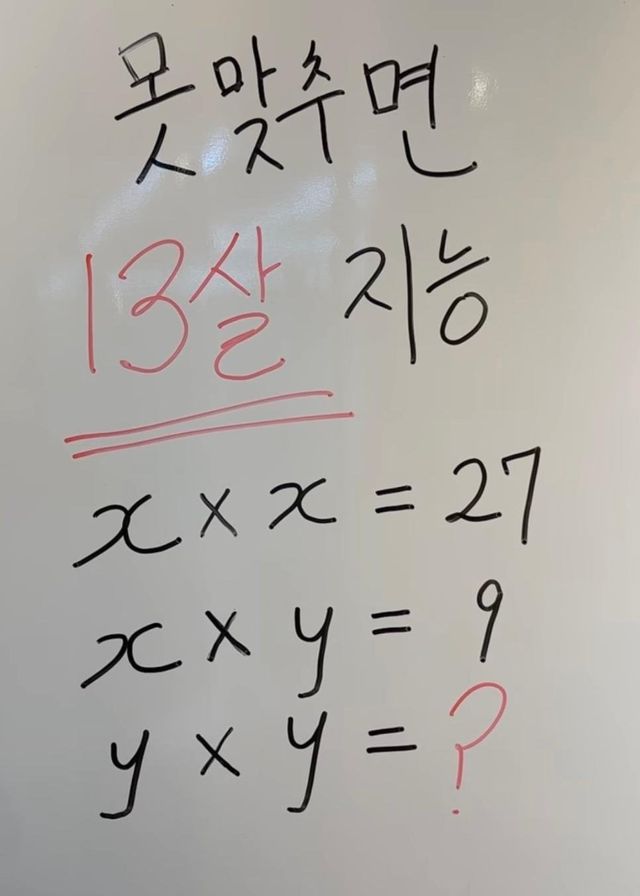 못 맞추면
13살 지능
x × x = 27
x × y = 9
y × y = ?